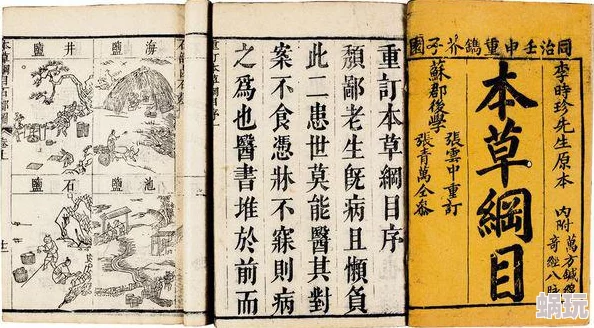 同治壬申重鐫芥子園
李時珍先生原本
內附
萬方鍼線
奇經八脈
本草綱目
蘇郡後學
張雲中重訂
張青萬仝參
重訂本草綱目序
頹鄙老生既病且懶負
此二患世莫能醫其對
案不食憑牀不寐則病
之爲也醫書堆於前而
重訂本草綱目序
海鹽
井鹽
池鹽
石鹽
本草綱目石部圖
卷上
蜗玩